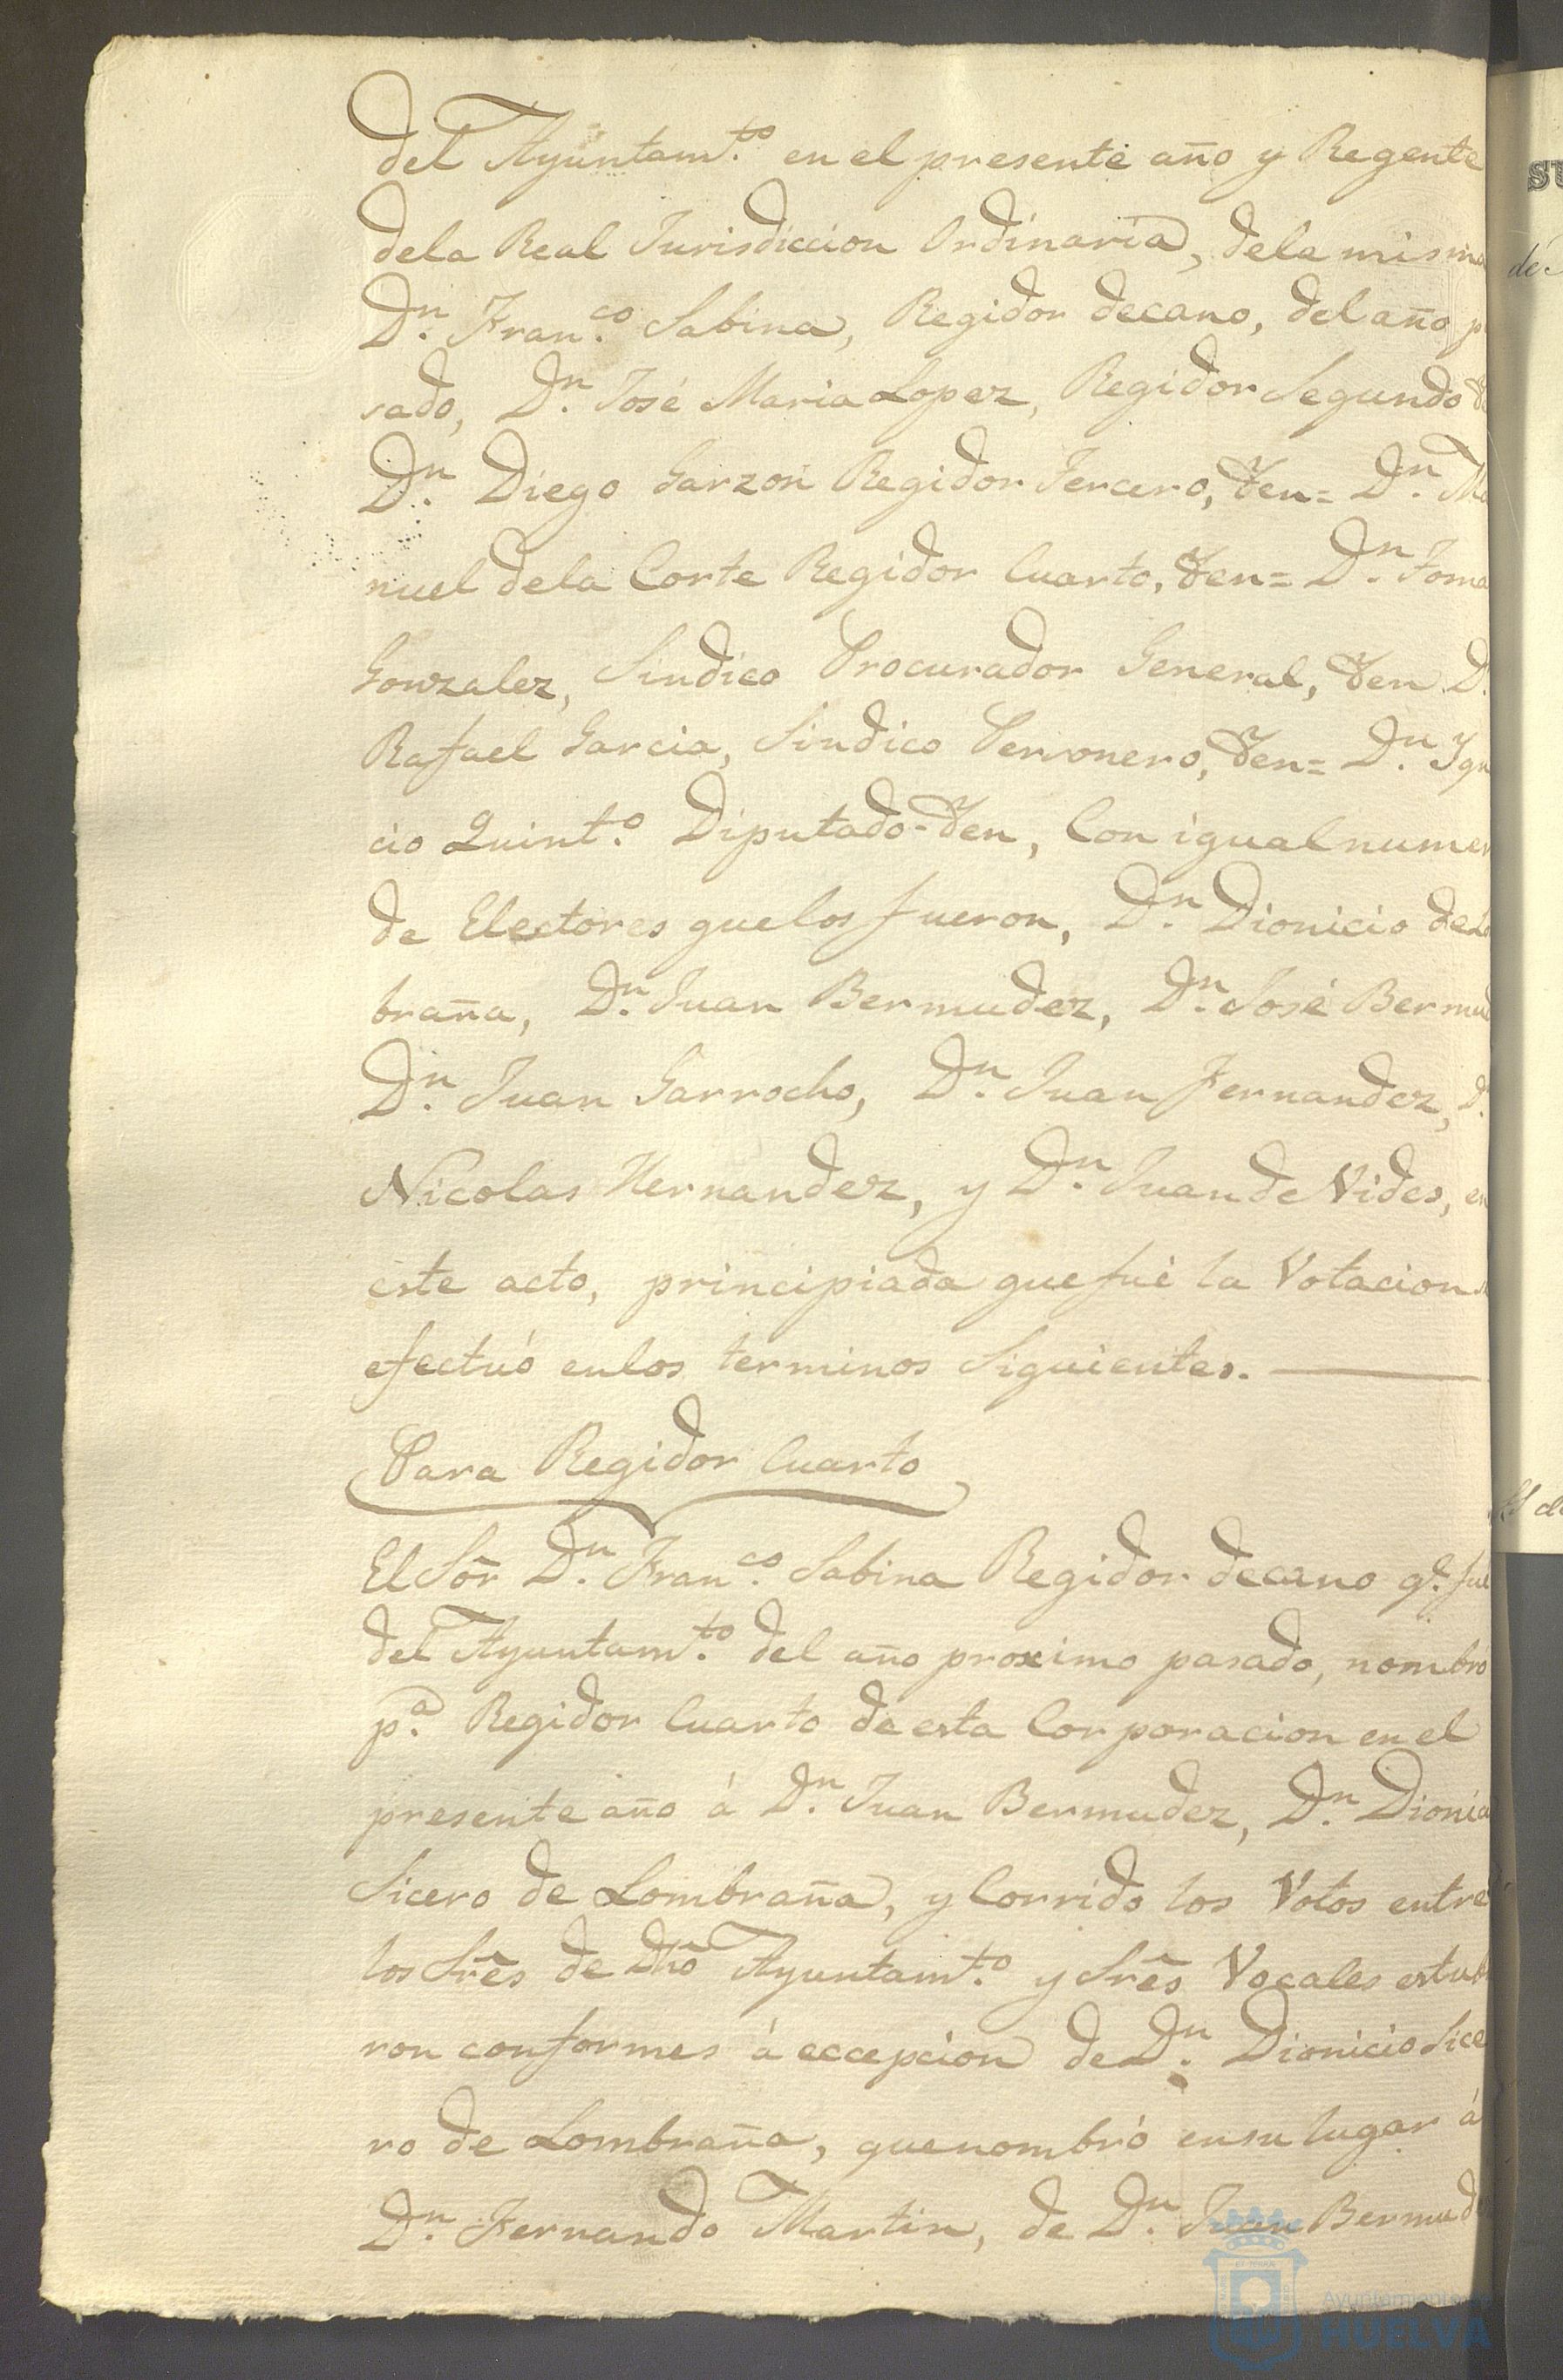 del Ayuntam.to en el presente año y Regente
dela Real Jurisdiccion Ordinaria, dela misma
Dn. Fran.co Sabina, Regidor decano, del año p
sado, Dn. José Maria Lopez, Regidor Segundo
Dn. Diego Garzon Regidor Tercero, Yden= Dn. Ma
nuel dela Corte Regidor Cuarto, Yden= Dn. Toma
Gonzalez, Sindico Procurador General, Yden D.
Rafael Garcia, Sindico Personero, Yden= Dn. Ygn
cio Quint.o Diputado-Yden, Con igual numer
de Electores que los fueron, Dn. Dionicio de Lo
braña, Dn. Juan Bermudez, Dn. José Bermud
Dn. Juan Garrocho, Dn. Juan Fernandez, D.
Nicolas Hernandez, y Dn. Juan de Vides, en
este acto, principiada que fué la Votacion
efectuó en los terminos Siguientes.
Para Regidor Cuarto
El Sõr Dn. Fran.co Sabina Regidor decano q.e fue
del Ayuntam.to del año proximo pasado, nombró
p.a Regidor Cuarto de esta Corporacion en el
presente año á Dn. Juan Bermudez, Dn. Dionic
Sicero de Lombraña, y Corrido los Votos entre
los Srẽs de Dhõ Ayuntam.to y Srẽs Vocales estub
ron conformes á eccepcion de Dn. Dionicio Sice
ro de Lombraña, que nombró en su lugar á
Dn. Fernando Martin, de Dn. Juan Bermud
Ayuntamiento de
HUELVA